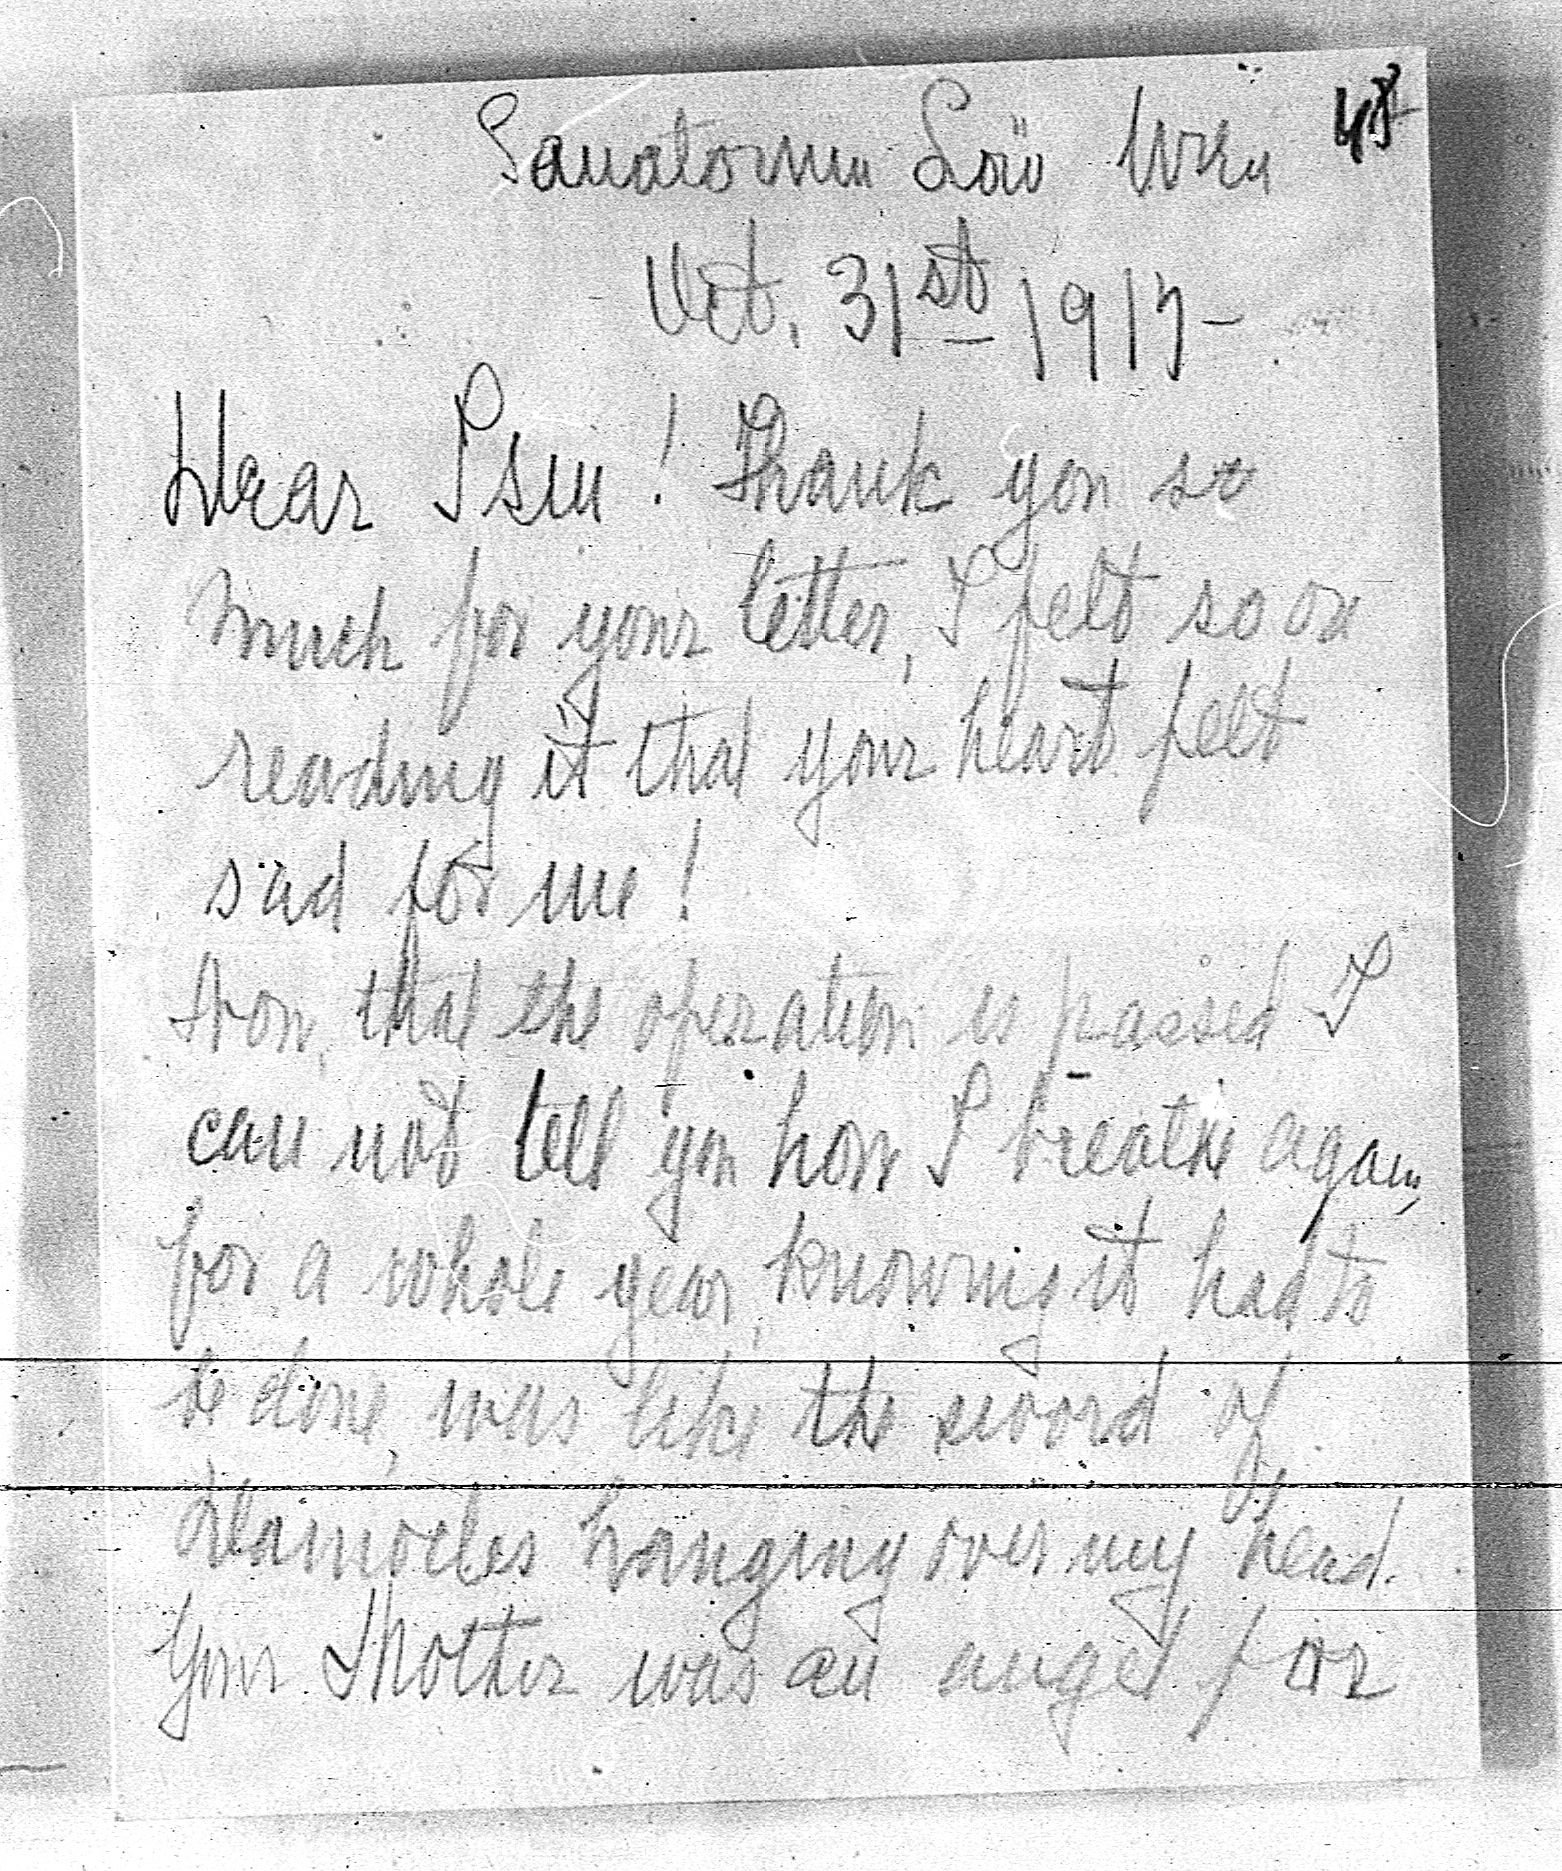 Sanatorium Löw Wien
Oct. 31st 1917-
Dear Ism! Thank you so
much for your letter, I felt so on
reading it that your heart felt
sad for me!
Now, that the operation is passed I
can not tell you how I breathe again,
for a whole year, knowing it had to
be done, was like the sword of
Damocles hanging over my head.
Your Mother was an angel for